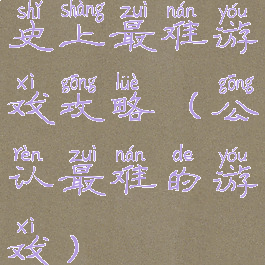 shǐ shàng zuì nán yóu
史上最难游
xì gōng lüè gōng
戏攻略（公
rèn zuì nán de yóu
认最难的游
xì
戏）